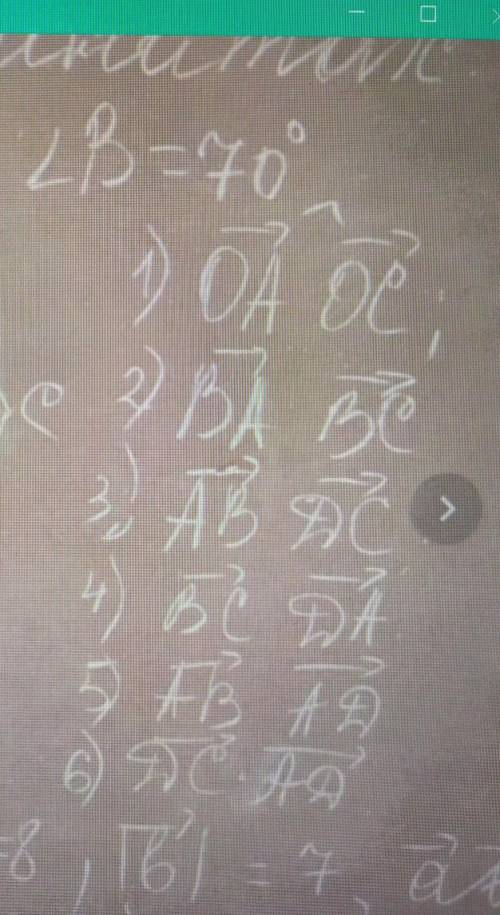 ∠B = 70°
1) O͞A⃗ ^ OC⃗ ;
2) BA⃗ BC⃗
3) AB⃗ DC⃗
4) BC⃗ DA⃗
5) AB⃗ AD⃗
6) DC⃗ · AD⃗
8, |b⃗| = 7, a⃗